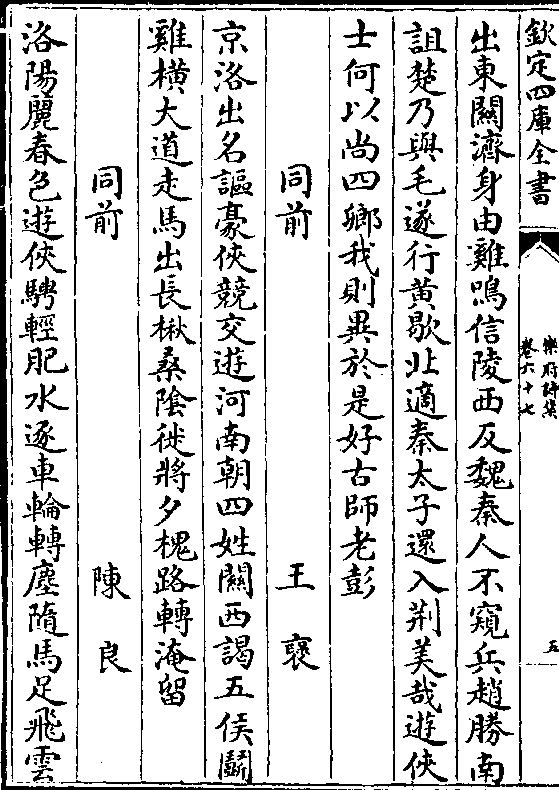 欽定四庫全書
樂府詩集
卷六十七
五
出東關濟身由雞鳴信陵西反魏秦人不窺兵趙勝南
詛楚乃與毛遂行黄歇北適秦太子還入荆美哉遊俠
士何以尚四鄉我則異於是好古師老彭
同前 王襃
京洛出名謳豪俠競交遊河南朝四姓關西謁五侯鬭
雞横大道走馬出長楸桑隂徙將夕槐路轉淹留
同前 陳良
洛陽麗春色遊俠騁輕肥水逐車輪轉塵隨馬足飛雲